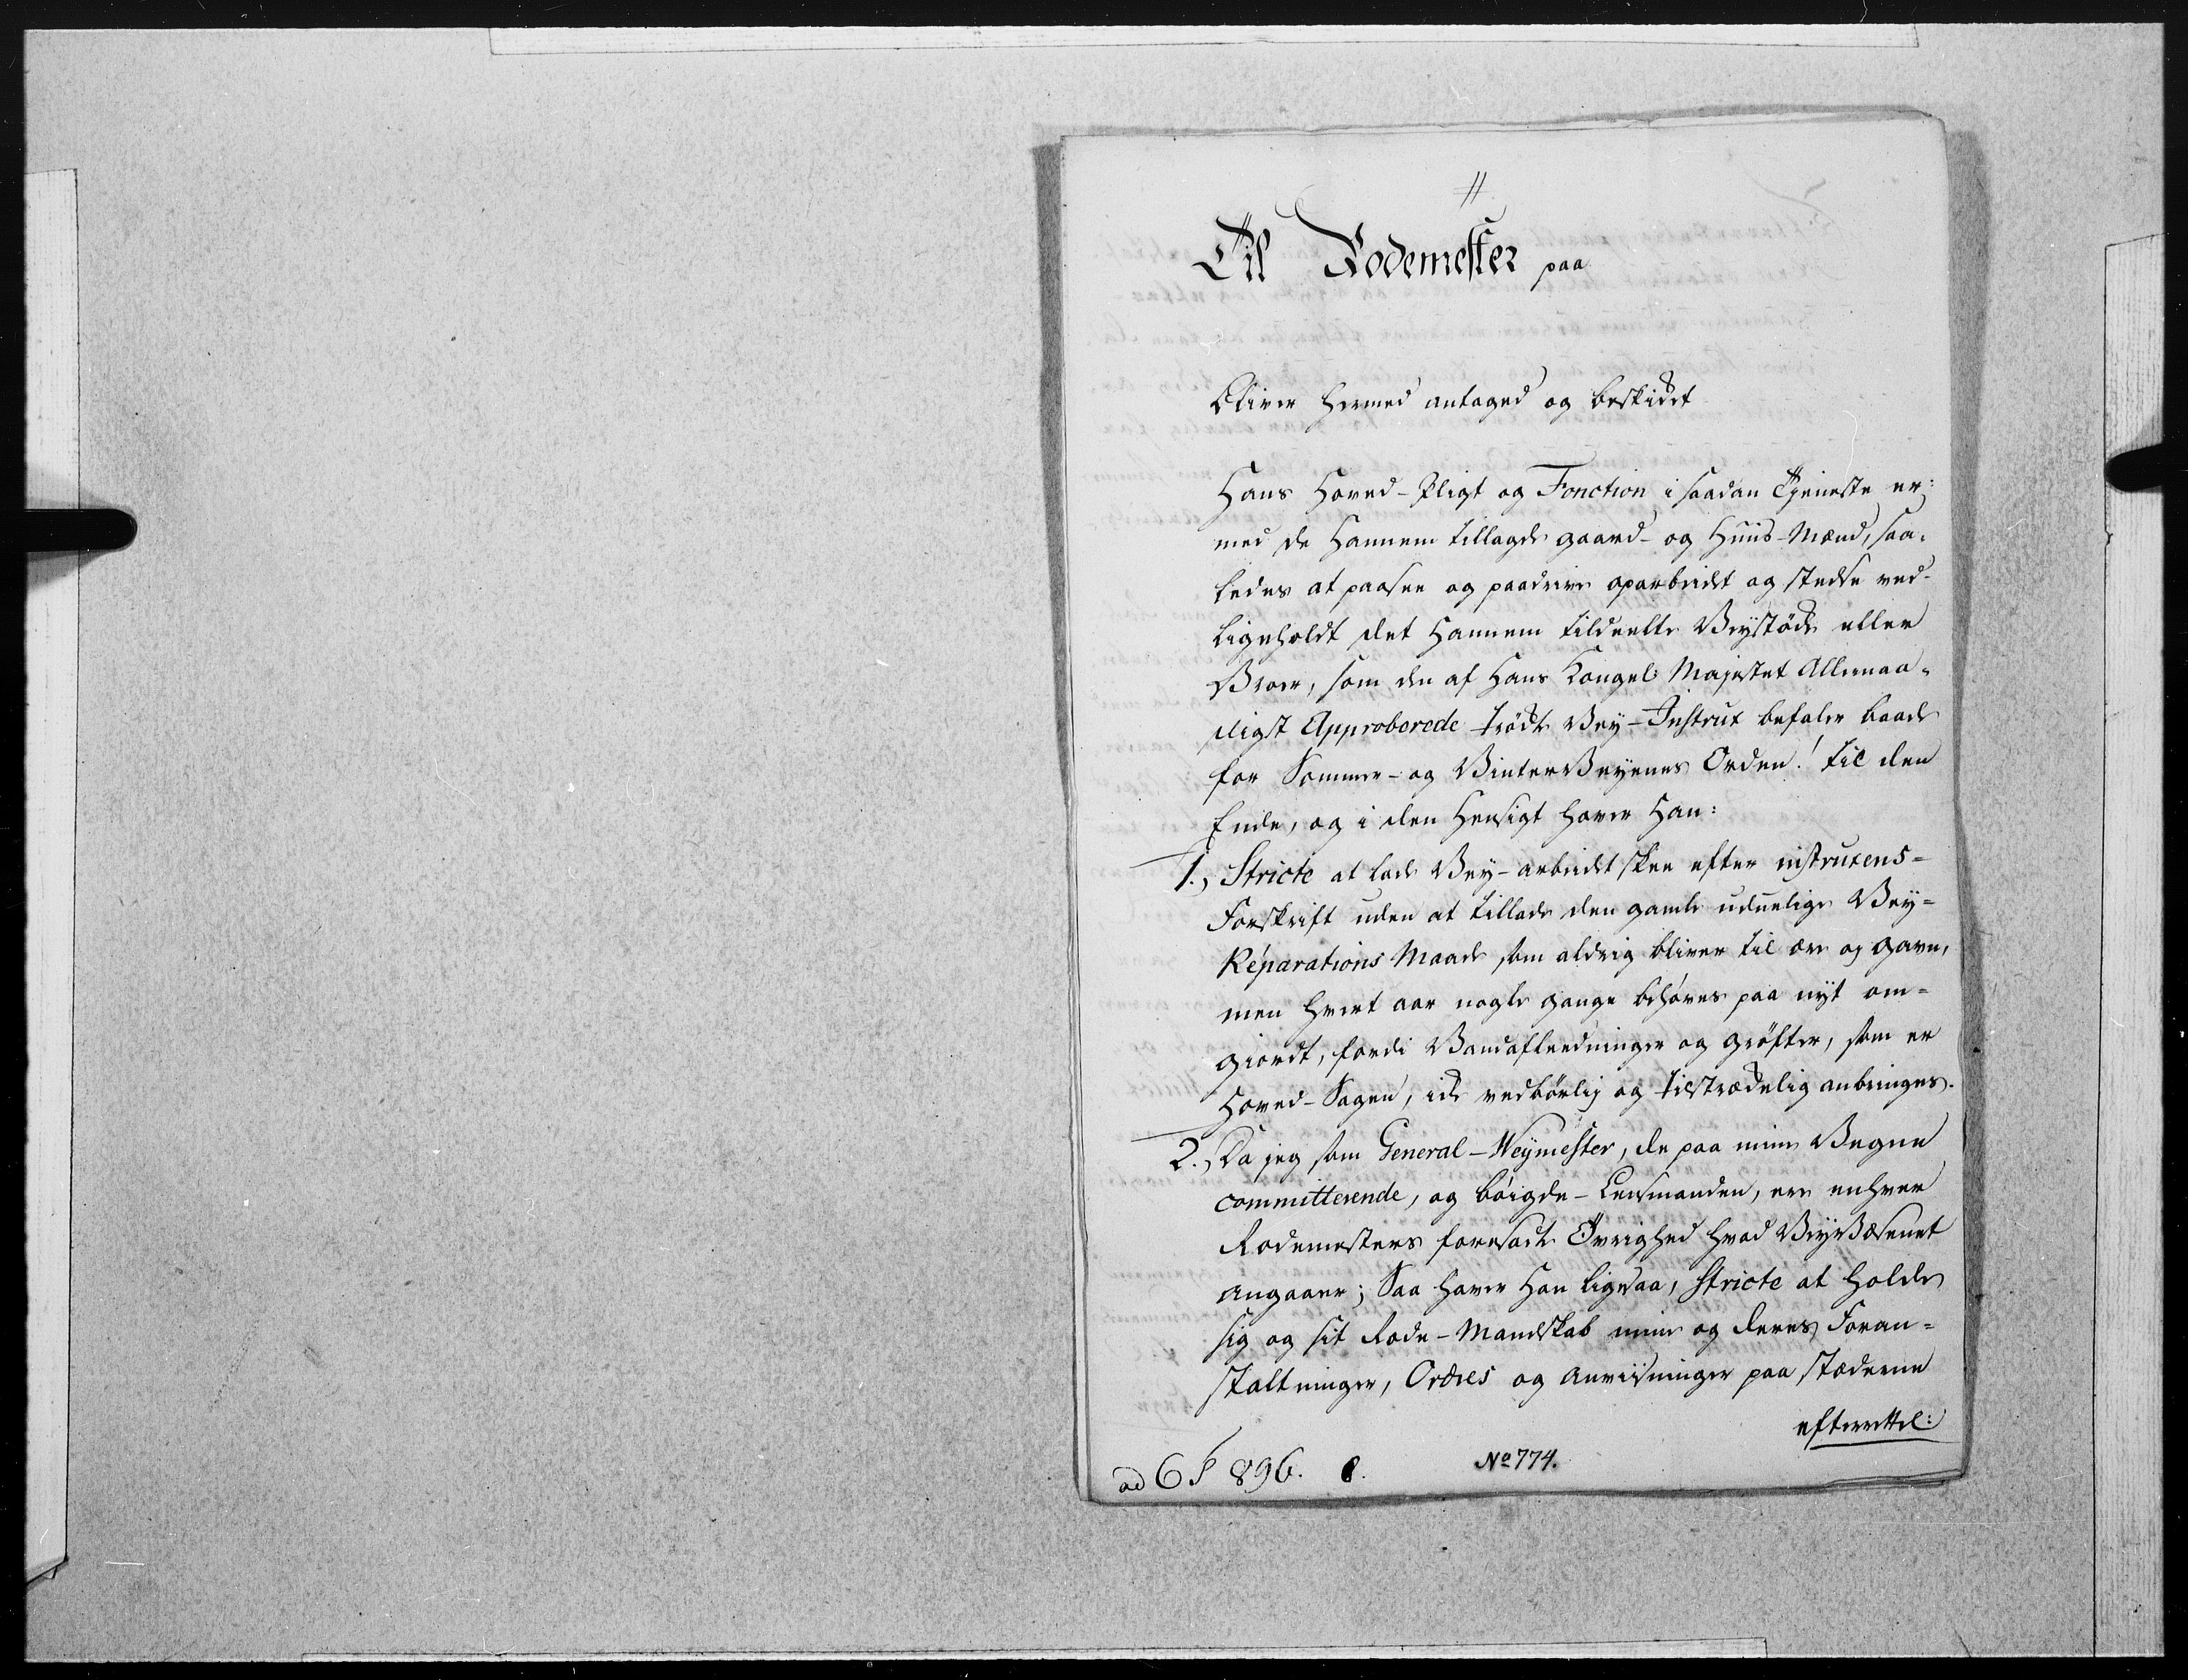 Til Rodemester paa
Bliver hermed antaged og beskikket
Hans Hoved-Pligt og Fonction i saadan Tjeneste er:
med de Hannem tillagde gaard- og Huus-Mænd, saa-
ledes at paasee og paadrive oparbeidet og stedse ved-
ligeholdt det Hannem tildeelte Veystökke eller
Broer, som den af Hans Kongel: Majestet Allernaa-
digst Approberede trökte Vey-Instrux befaler baade
for Sommer- og VinterVeyenes Orden! til den
Ende, og i den Hensigt haver Han:
1., Stricte at lade Vey-arbeidet skee efter instruxens-
Forskrift uden at tillade den gamle uduelige Vey-
Réparations Maade som aldrig bliver til ære og gavn,
men hvert aar nogle gange behøves paa nyt om-
giordt, fordi Vandafleedninger og grøfter, som er
Hoved-Sagen, ikke vedbørlig og tilstrækkelig anbringes.
2., Da jeg som General-Weymester, de paa mine Vegne
committerende, og böigde-Lensmanden, ere enhver
Rodemesters foresadte Øvrighed hvad VeyVæsenet
angaaer; Saa haver Han ligesaa, Stricte at holde
sig og sit Rode-Mandskab mine og deres Foran-
staltninger, Ordres og anviisninger paa stæderne
efterrettel:
No 774.
ad 6 896.